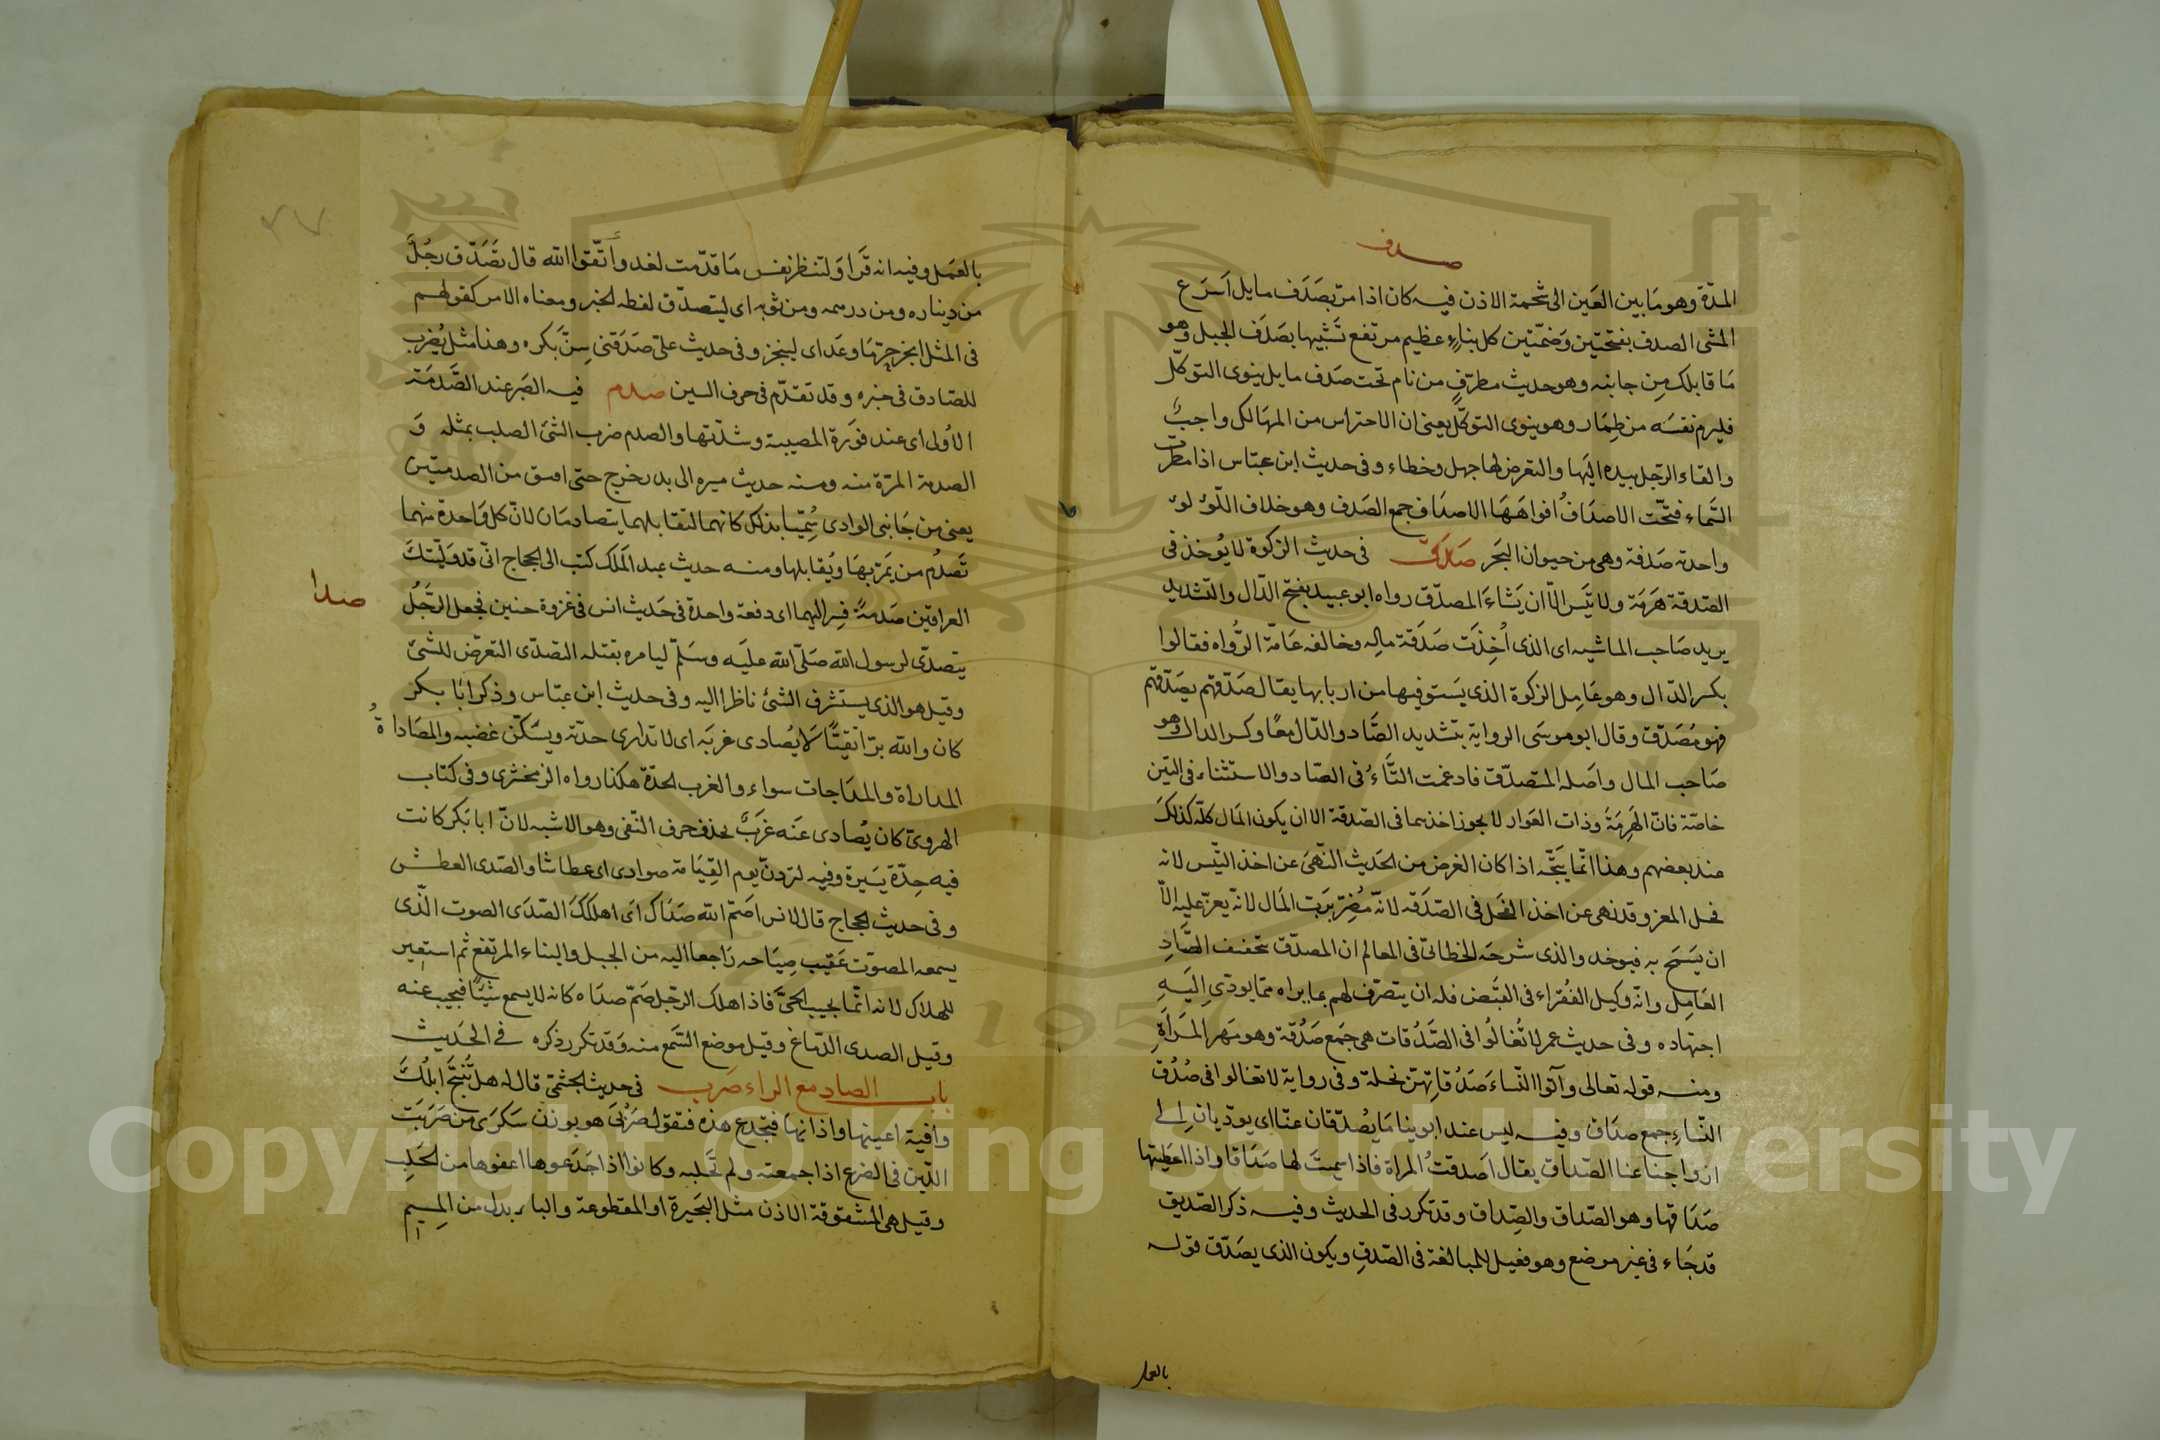 صدف
المدّة وهو مَا بين العَين الى شحمة الاذن فيه كان اذا مرّ بصَدَف مايل اَسرَع
المشى الصدف بفتحتين وَضمّتين كل بناءٍ عظيم مرتفع تَشبيها بصَدَف الجبل وهو
مَا قابلك مِن جانبه وهو حديث مطرّفٍ من نام تحت صَدَف مايل ينوى التوكّل
فليرم نفسَه من طِمَار وهو ينوى التوكّل يعنى ان الاحتراس من المهَالك واجبٌ
والقاء الرّجل بيده اليَها والتعرض لها جهل وخطاء وفى حديث ابن عبّاس اذا مطرت
السّماء فتحّت الاصدَافُ افواهَهَا الاصدَاف جمع الصَدف وهو خلاف اللّؤلؤ
واحدته صَدَفة وهى من حيوان البحَر صَدَق فى حديث الزكوة لا يُوخذ فى
الصّدقة هَرَمَة ولا تَيَس الّا ان يَشاءَ المصدّق رواه ابو عبيد بفتح الدّال والتّشديد
يريد صَاحب الماشيه اى الذى اُخِذَت صَدَقة مالِه وخالفه عَامّة الرُّواه فقالوا
بكسر الدّال وهو عَامِل الزكوة الذى يَستوفيها من اربابها يقال صَدّقهم يصَدّقهم
فهو مُصَدّق وقال ابو موسَى الرواية بتشديد الصَّاد والدّال معًا وكسر الدال وهو
صَاحب المال واَصله المتصدّق فادغمت التَّاءُ فى الصّاد والاستثناء فى التيَن
خاصّة فانّ الهَرِمَةَ وذات العَوار لا يجوز اخذهما فى الصّدقة الا ان يكون المَال كلّه كذلكَ
عند بعضهم وهذا انّما يتَّجّه اذا كان الغرض من الحَديث النّهىَ عن اخذ التّيس لانه
فحل المعز وقد نهى عن اخذ الفحَل فى الصّدَقه لانّه مُضِرّ بَرَبّ المَال لانّه يعزّ عليه اِلّا
ان يَسَمَح به فيوخذ والذى شرحَه الخطابىّ فى المعالم ان المصدّق بتخفيف الصَّادِ
العَامِل وانّه وكيل الفُقراء فى القبَض فله ان يتصرّف لهم بما يراه ممّا يودّى اِليَهِ
اجتهاده وفى حديث عمر لا تُغالُوا فى الصَّدُقات هى جمَع صَدُقة وهو مَهر المَراَةِ
ومنه قوله تعالى وآتوا النّساءَ صَدُقاتِهنّ نحلة وفى رواية لا تغالوا فى صُدُق
النّساءِ جمع صدَاق وفيه ليس عند ابوينا مَا يُصُدّقان عنّا اى يودّيان الى
ازواجنا عنا الصّداق يقال اَصَدقتُ المراة فاذا سميتَ لها صَدَاقا واذا اعطيتها
صَدَاقها وهو الصّداق والصِّداق وقد تكرر فى الحديث وفيه ذكر الصّديق
قد جَاء فى غير موضع وهو فعيل للمبالغة فى الصّدقِ ويكون الذى يصَدّق قوله
بالعمل
بالعمَل وفيه انه قَرَا وَلتنظر نفس مَا قدّمت لغد واتّقوا الله قال تصَدّق رجُلٌ
من ديناره ومن درهمه ومن ثوبه اى ليتصدّق لفظه الخبر ومعناه الامر كقولهم
فى المثل انجز حرّ مَا وعَد اى لينجز وفى حديث علىّ صَدَقنى سِنّ بَكره وهذا مثل يُضرب
للصّادق فى خبره وقد تقدّم فى حرف السين صدم فيه الصَبر عند الصَّدمَة
الاُولى اى عند فوَرة المصيبة وشدّتها والصدم ضرب الشئ الصلب بمثله وَ
الصدمة المرّة منه ومنه حديث ميره الى بدر خرج حتى افتق من الصدمتين
يعنى من جَانبى الوادى سُمِّيتا بذلك كانهما لتقابلهما يتصادمَان لانّ كل وَاحدة منهما
تَصدُم من يَمرّ بهَا ويُقابلها ومنه حديث عبد المَلك كتب الى الحجاج انّى قد وَلّيتكَ
العراقين صَدمَةً فسِر اليهما اى دفعة واحدة فى حَديث انس فى غزوة حنين فجعل الرَّجُلُ
صدا
يتصدّى لرسول الله صَلّى الله عليَه وسَلمّ ليامره بقتله التصدّى التعرّض للشئ
وقيل هو الذى يستشرف الشئ ناظرا اليه وفى حديث ابن عبّاس وذكر ابَا بكر
كان والله برّا تقيّا لا يُصَادى غربَه اى لا تدارى حدّته ويسَكّن غضبه والمصَاداةُ
المداراة والمدَاجات سواء والغرب الحدّة هكذا رواه الزمخشرى وفى كتاب
الهروىّ كان يُصادى عَنه غَربٌ بحذف حرف النّفى وهو الاشبه لانّ ابا بَكر كانت
فيه حِدّة يَسَيرة وفيه لتردنّ يوم القِيَامة صوادى اى عطاشا والصّدى العطش
وفى حديث الحجاج قال لانس اصَمّ الله صَدَاك اى اهلككَ الصّدَى الصوت الّذى
يسمعه المصوّت عَقيب صِيَاحه رَاجعا اليه من الجبل والبناء المرتفع ثم استعير
للهلاك لانه انّما يجيب الحىَّ فاذا هلك الرّجل صَمّ صداه كانه لا يسمع شَيئًا فيجيب عنه
وقيل الصدى الدّماغ وقيل موضع السَّمع منه وَقد تكرر ذكره فى الحَديث
باب الصاد مع الراء صَرب فى حديث الجشمىّ قال له هل تُنتَج ابلُكَ
وافيَة اعينها واذانها فتجدع هذه فتقول صَرْبَى هو بوزن سَكرَى من صَرَبَت
اللّبن فى الضرع اذا جمعته ولم تحَلبه وكانوا اذا جَدَعوها اعفوها من الحَلبِ
وقيل هى المشقوقة الاذن مثل البَحَيرة او المقطوعة والباء بدل من المِيم
Copyright © King Saud University
1957